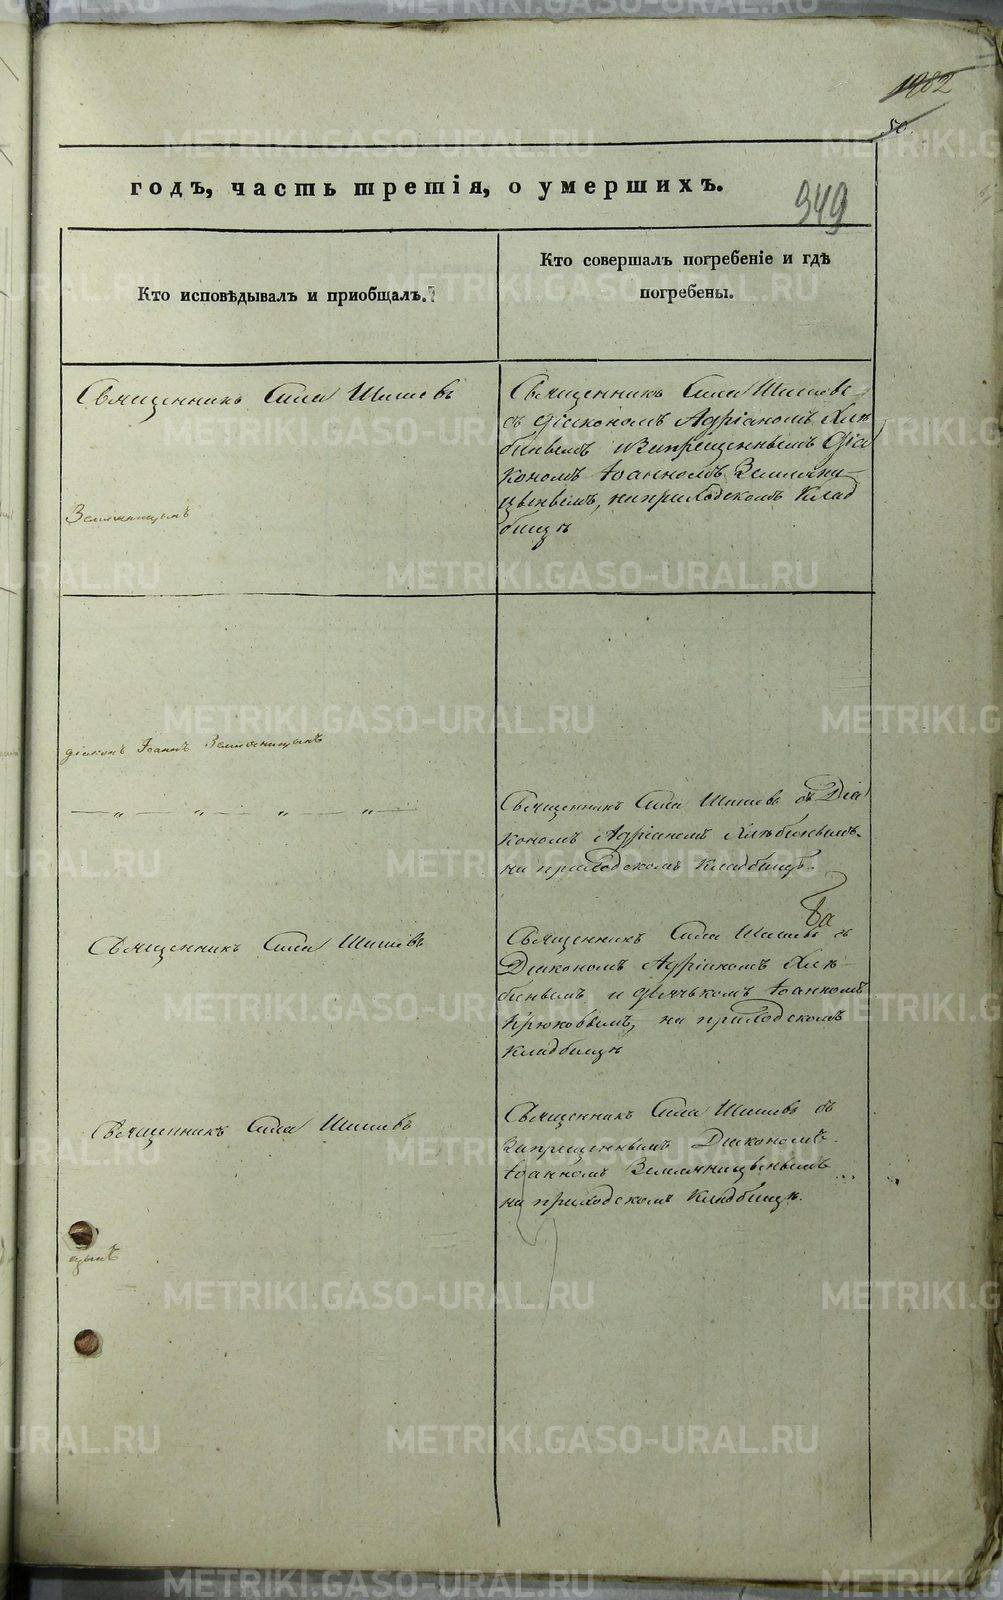 1282
50.
годъ, часть третія, о умершихъ.
949
Кто исповѣдывалъ и приобщалъ.
Кто совершалъ погребеніе и гдѣ
погребены.
Священникъ Сила Шишевъ
Священникъ Сила Шишевъ
съ діакономъ Адріаномъ Хлѣ
бинымъ и запрещеннымъ Діа
кономъ Іоанномъ Земляни
цынымъ, на приходскомъ клад
бищѣ
Земляницынъ
діаконъ Іоаннъ Земляницынъ
— „ — „ — „ — „ —
Священникъ Сила Шишевъ съ Діа
кономъ Адріаномъ Хлѣбинымъ.
на приходскомъ кладбищѣ.
Священникъ Сила Шишевъ
Священникъ Сила Шишевъ съ
Діакономъ Адріаномъ Хлѣ–
бинымъ и дьячькомъ Іоанномъ
Крюковымъ, на приходскомъ
кладбищѣ
Священникъ Сила Шишевъ
Священникъ Сила Шишевъ съ
запрещеннымъ Діакономъ
Іоанномъ Земляницынымъ
на приходскомъ кладбищѣ.
цынъ
METRIKI.GASO-URAL.RU